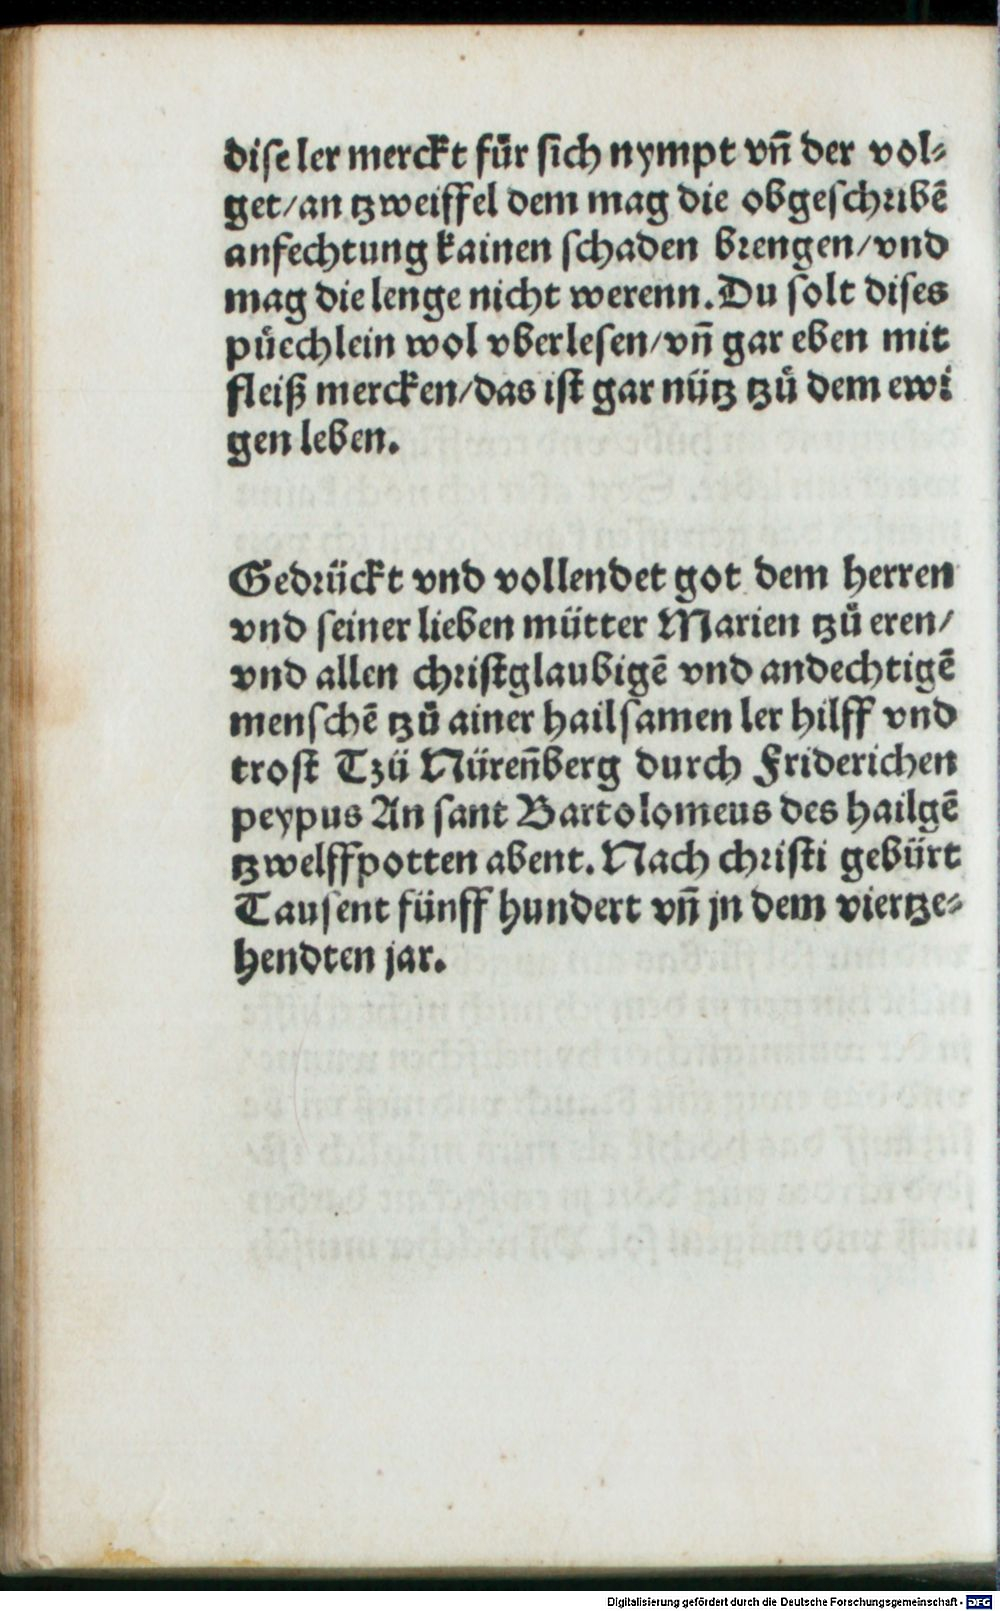 dise ler merckt für sich nympt vn̄ der vol⸗
get/an tzweiffel dem mag die obgeschribē
anfechtung kainen schaden brengen/vnd
mag die lenge nicht werenn.Du solt dises
püechlein wol vberlesen/vn̄ gar eben mit
fleiß mercken/das ist gar nütz tzů dem ewi
gen leben.
Gedrückt vnd vollendet got dem herren
vnd seiner lieben mütter Marien tzů eren/
vnd allen christglaubigē vnd andechtigē
menschē tzů ainer hailsamen ler hilff vnd
trost Tzü Nüren̄berg durch Friderichen
peypus An sant Bartolomeus des hailgē
tzwelffpotten abent. Nach christi gebürt
Tausent fünff hundert vn̄ jn dem viertze⸗
hendten jar.
Digitalisierung gefördert durch die Deutsche Forschungsgemeinschaft - DFG